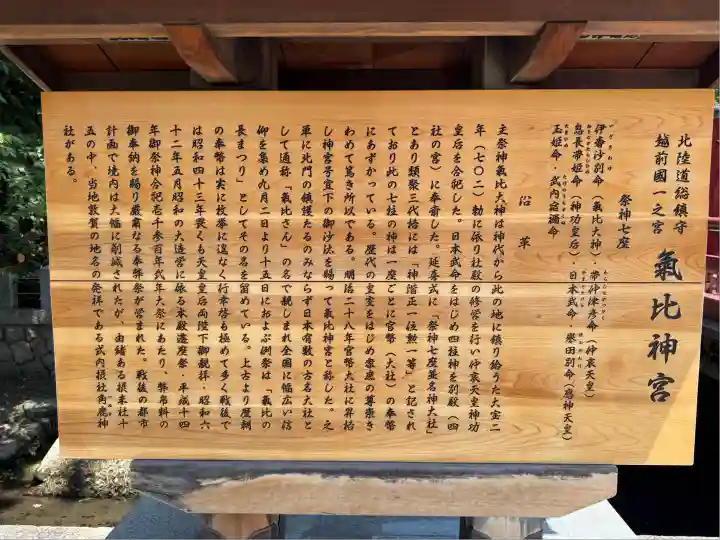 北陸道総鎮守
越前國一之宮
氣比神宮
祭神七座
伊奢沙別命(氣比大神)、帶仲津彦命(仲哀天皇)
息長帶姫命(神功皇后)、日本武命、譽田別命(應神天皇)
玉姫命、武内宿禰命
沿革
主祭神氣比大神は神代から此の地に鎮り給うた大宝二
年(七〇二)勅に依り社殿の修営を行い仲哀天皇神功
皇后を合祀した。日本武命をはじめ四柱神を別殿(四
社の宮)に奉斎した。延喜式に「祭神七座並名神大社」
とあり類聚三代格には「神階正一位勲一等」と記され
ており此の七柱の神は一座ごとに官幣(大社)の奉幣
にあずかっている。歴代の皇室をはじめ衆庶の尊崇き
わめて篤き所以である。明治二十八年官幣大社に昇格
し神宮号宣下の御沙汰を賜って氣比神宮と称した。之
単に北門の鎮護たるのみならず日本有数の古名大社と
して通称「氣比さん」の名で親しまれ全国に幅広い信
仰を集め九月二日より十五日におよぶ例祭は「氣比の
長まつり」としてその名を留めている。上古より歴朝
の奉幣は実に枚挙に遑なく行幸啓も極めて多く戦後で
は昭和四十三年畏くも天皇皇后両陛下御親拝、昭和六
十二年五月昭和の大造営に係る本殿遷座祭、平成十四
年御祭神合祀壱千参百年式年大祭にあたり、幣帛料の
御奉納を賜り厳粛なる奉幣祭が営まれた。戦後の都市
計画で境内は大幅に削減されたが、由緒ある摂末社十
五の中、当地敦賀の地名の発祥である式内摂社角鹿神
社がある。